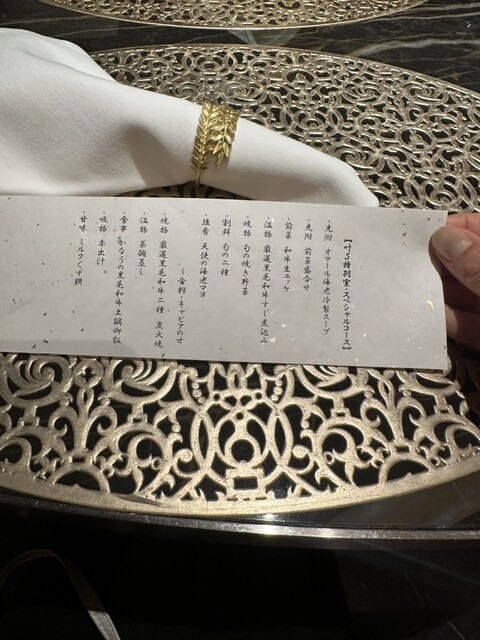 【十S特別室・スペシャルコース】
・先附 オマール海老冷製スープ
・先附 前菜盛合せ
・前菜 和牛生ユッケ
・温物 厳選黒毛和牛すじ煮込み
・焼物 旬の焼き野菜
・割鮮 旬の二種
・強肴 天使の海老マヨ
～金粉・キャビアのせ
・焼物 厳選黒毛和牛二種 炭火焼
・温物 茶碗蒸し
・食事 かなうの黒毛和牛土鍋御飯
・吸物 赤出汁
・甘味 ミルクくず餅